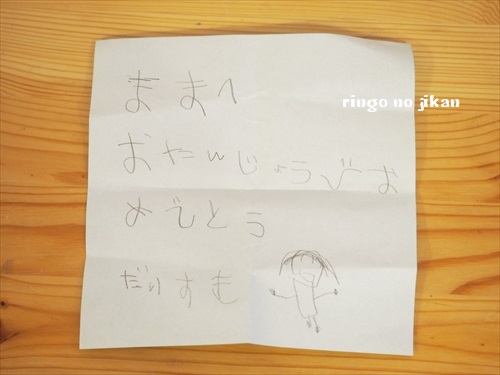 ままへ
ringo no jikan
おたんじょうびお
めでとう
だいすき